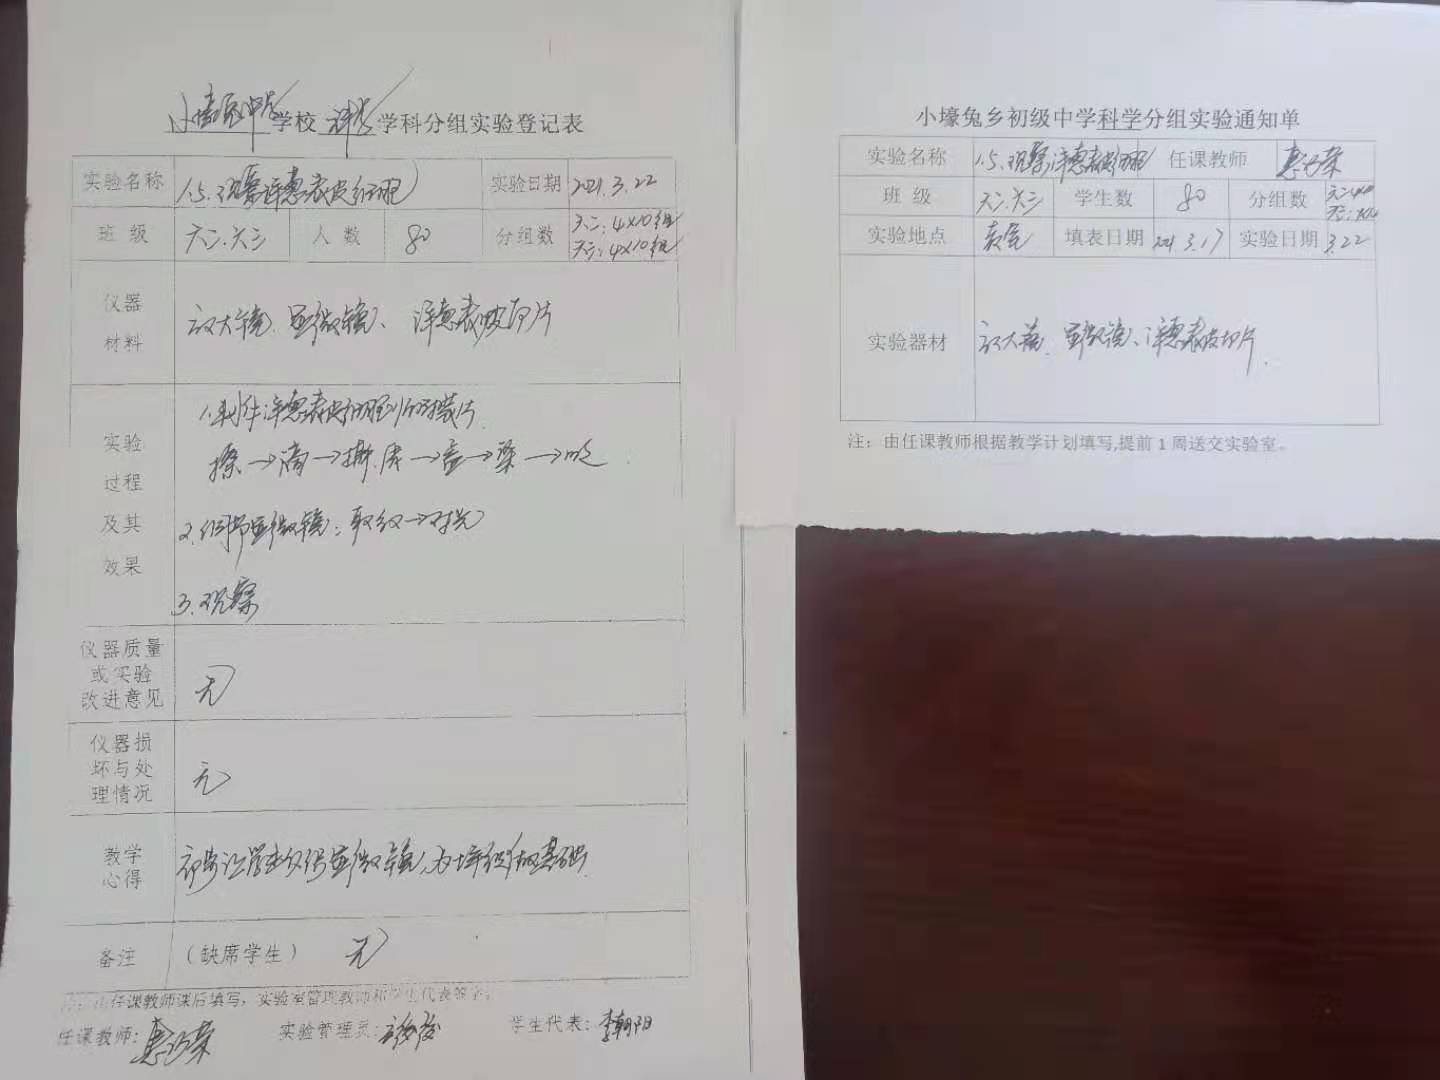 小壕兔中学学校 科学 学科分组实验登记表
实验名称 1.5.观察洋葱表皮细胞 实验日期 2021.3.22
班 级 六二.六三 人 数 80 分组数 六二:4×10组
六三:4×10组
仪器
材料
放大镜.显微镜、洋葱表皮切片
实验
过程
及其
效果
1.制作洋葱表皮细胞 装片
擦→滴→撕.展→盖→染→吸
2.使用显微镜:取放→对光
3.观察
仪器质量
或实验
改进意见
无
仪器损
坏与处
理情况
无
教学
心得
初步让学生 使用显微镜,为 基础
备注 (缺席学生) 无
由任课教师课后填写,实验室管理教师和学生代表签字。
任课教师: 实验管理员: 学生代表:李朝阳
小壕兔乡初级中学科学分组实验通知单
实验名称 1.5.观察洋葱表皮细胞 任课教师
班 级 六二.六三 学生数 80 分组数
实验地点 教室 填表日期 2021.3.17 实验日期 3.22
实验器材 放大镜.显微镜、洋葱表皮切片.
注:由任课教师根据教学计划填写,提前1周送交实验室。